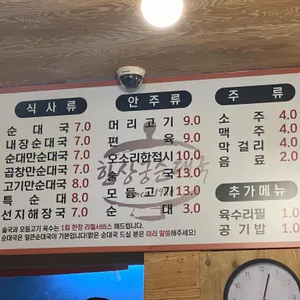 식사류
순대국 7.0
내장순대국 7.0
순대만순대국 7.0
곱창만순대국 7.0
고기만순대국 8.0
특순대국 8.0
선지해장국 7.0
안주류
머리고기 9.0
편육 9.0
오소리한접시 10.0
술국 13.0
모듬고기 13.0
순대 3.0
주류
소주 4.0
맥주 4.0
막걸리 4.0
음료 2.0
추가메뉴
육수리필 1.0
공기밥 1.0
술국과 모듬고기 육수는 1회 한정 리필서비스 해드립니다.
순대국은 얼큰순대국이 기본입니다(맑은 순대국 드실 분은 미리 말씀해주세요)